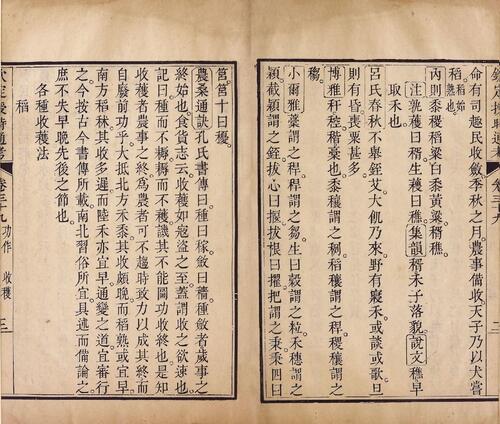 欽定授時通考 卷三十九
命有司趣民收斂季秋之月農事備收天子乃以犬嘗
稻稻始熟也
內則黍稷稻粱白黍黃粱稰穛
注孰穫曰稰生穫曰穛集韻稰禾子落貌說文穛早
取禾也
呂氏春秋不舉銍艾大飢乃來野有寢禾或談或歌旦
則有昏喪粟甚多
博雅秆稭稾也黍穰謂之稻穰謂之稈稷穰謂之
小爾雅藁謂之稈稈謂之芻生曰穀謂之粒禾穗謂之
穎截穎謂之銍拔心曰揠拔根曰擢把謂之秉秉四曰
筥筥十曰稯
農桑通訣孔氏書傳曰種曰稼斂曰穡種斂者歲事之
終始也食貨志云收穫如寇盜之至蓋謂收之欲速也
記曰種而不耨耨而不穫譏其不能圖功收終也是知
收穫者農事之終為農者可不趨時致力以成其終而
自廢前功乎大抵北方禾黍其收頗晚而稻熟或宜早
南方稻秫其收多遲而陸禾亦宜早通變之道宜審行
之今按古今書傳所載南北習俗所宜具述而備論之
庶不失早晚先後之節也
各種收穫法
稻
欽定授時通考 卷三十九 功作 收穫 三